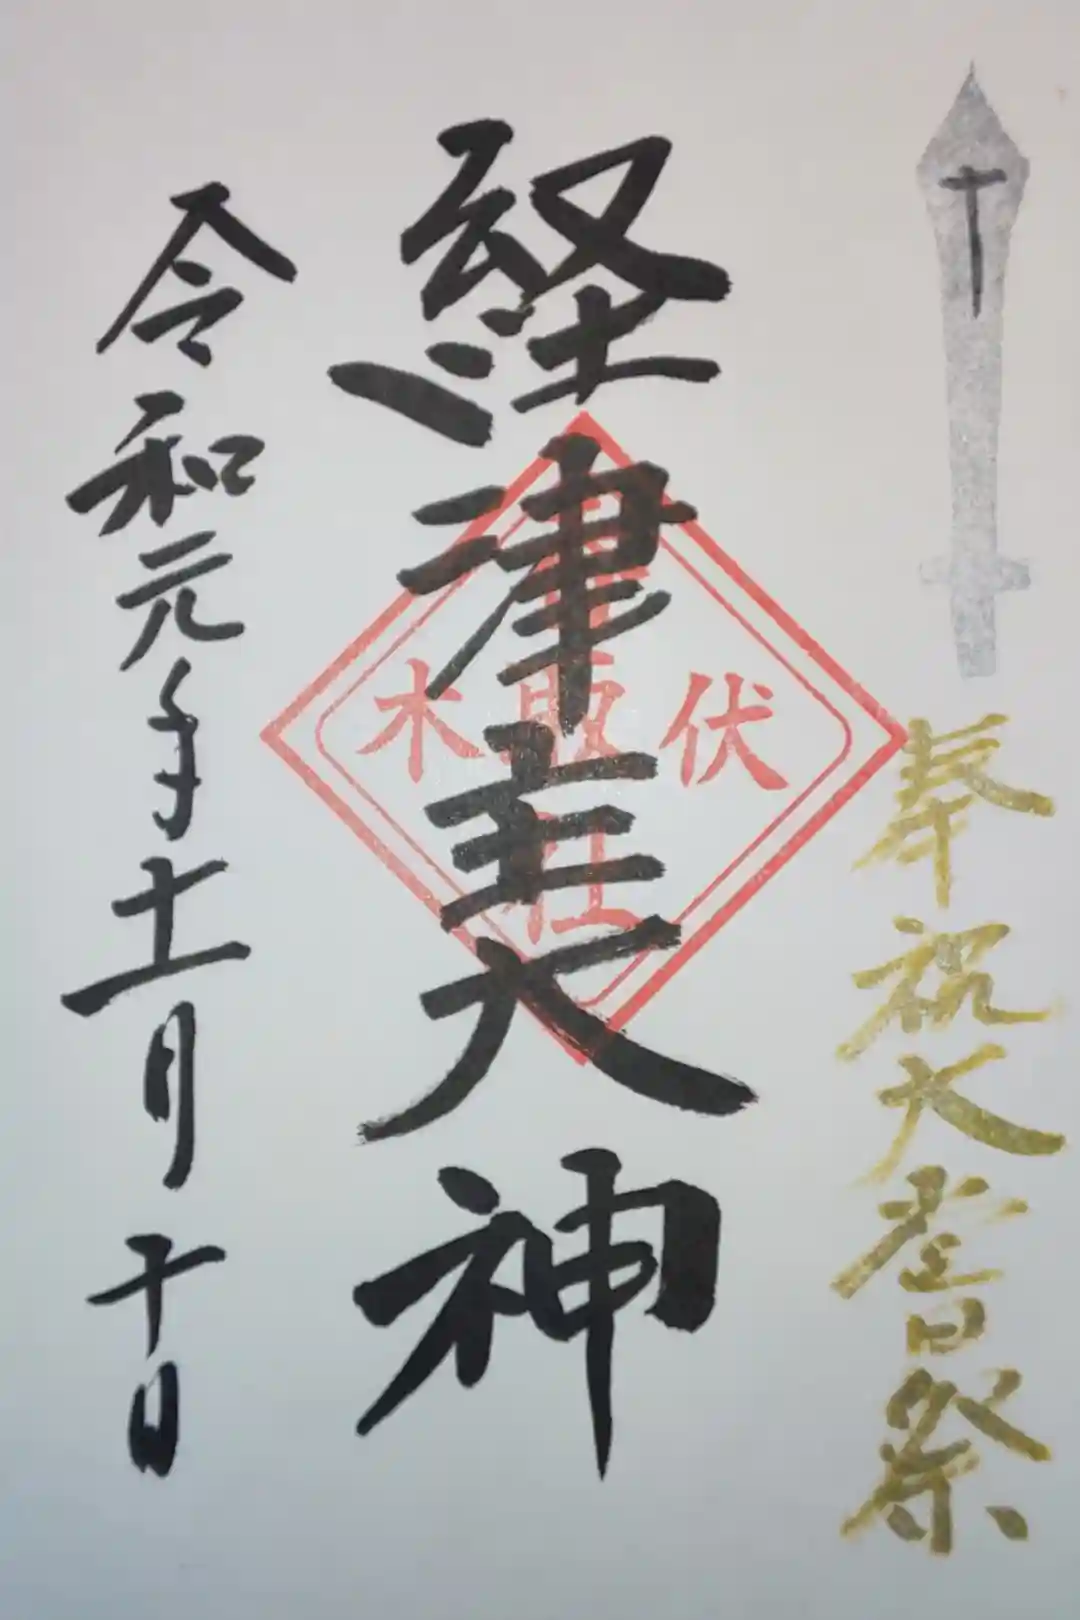 奉祝大嘗祭
経津主大神
令和元年十一月十日
伏木
取社